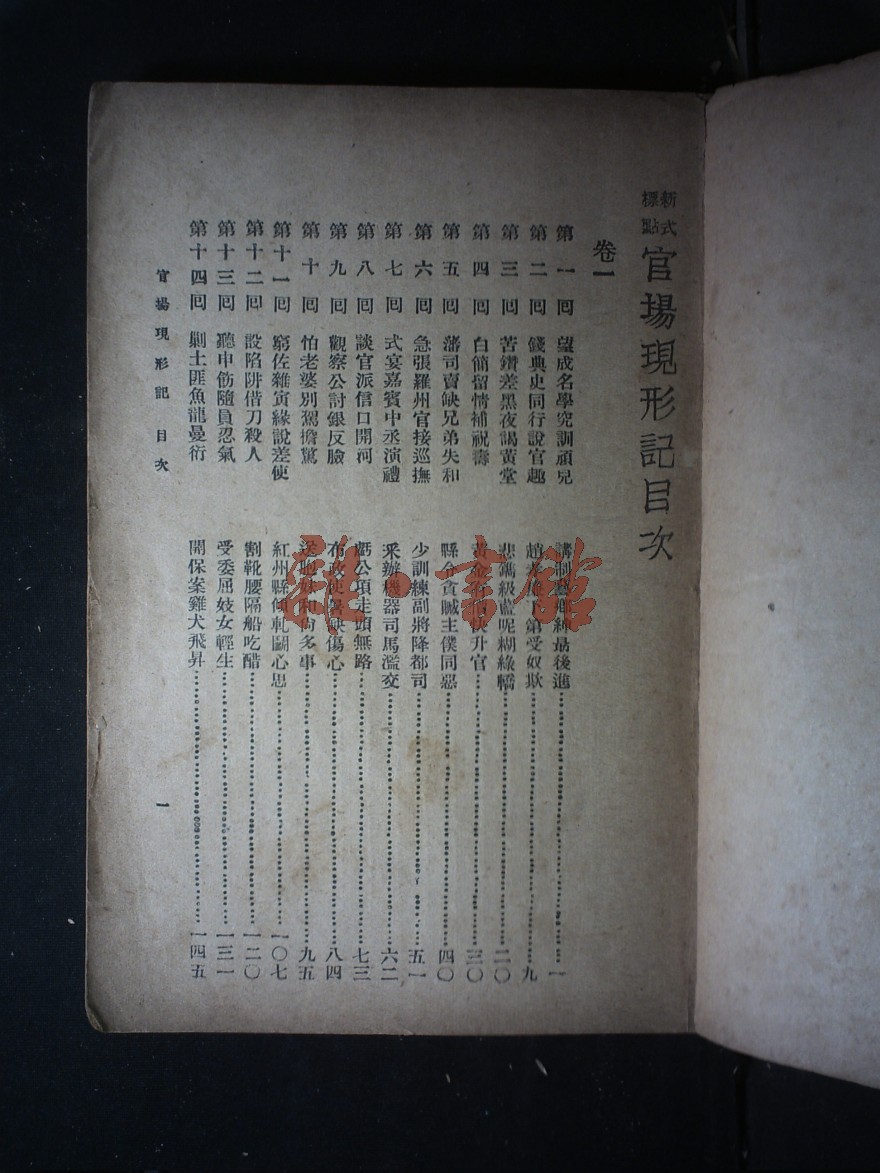 新式標點 官場現形記目次
卷一
第一回 望成名學究訓頑兒 講制藝鄉紳最後進 一
第二回 錢典史同行說官趣 趙孝廉下第受奴欺 九
第三回 苦鑽差黑夜謁黃堂 悲鐫級藍呢糊綠轎 二〇
第四回 白簡留情補祝壽 黃金有價快升官 三〇
第五回 藩司賣缺兄弟失和 縣令貪贓主僕同惡 四〇
第六回 急張羅州官接巡撫 少訓練副將降都司 五一
第七回 式宴嘉賓中丞演禮 采辦機器司馬濫交 六二
第八回 談官派信口開河 虧公項走頭無路 七三
第九回 觀察公討銀反臉 布政使署缺傷心 八四
第十回 怕老婆別駕擔驚 送胞妹和尚多事 九五
第十一回 窮佐雜夤緣說差使 紅州縣傾軋鬬心思 一〇七
第十二回 設陷阱借刀殺人 割靴腰隔船吃醋 一二〇
第十三回 聽申飭隨員忍氣 受委屈妓女輕生 一三一
第十四回 剿土匪魚龍曼衍 開保案雞犬飛昇 一四五
官場現形記 目次 一
雜·書館